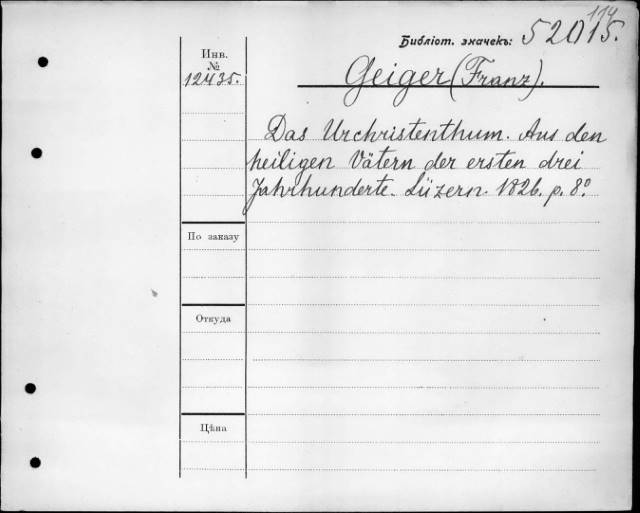 114
Библіот. значекъ: 52015.
Инв.
№
12435.
Geiger (Franz).
Das Urchristenthum. Aus den
heiligen Vätern der ersten drei
Jahrhunderte. Lüzern. 1826. p. 8º
По заказу
Откуда
Цѣна